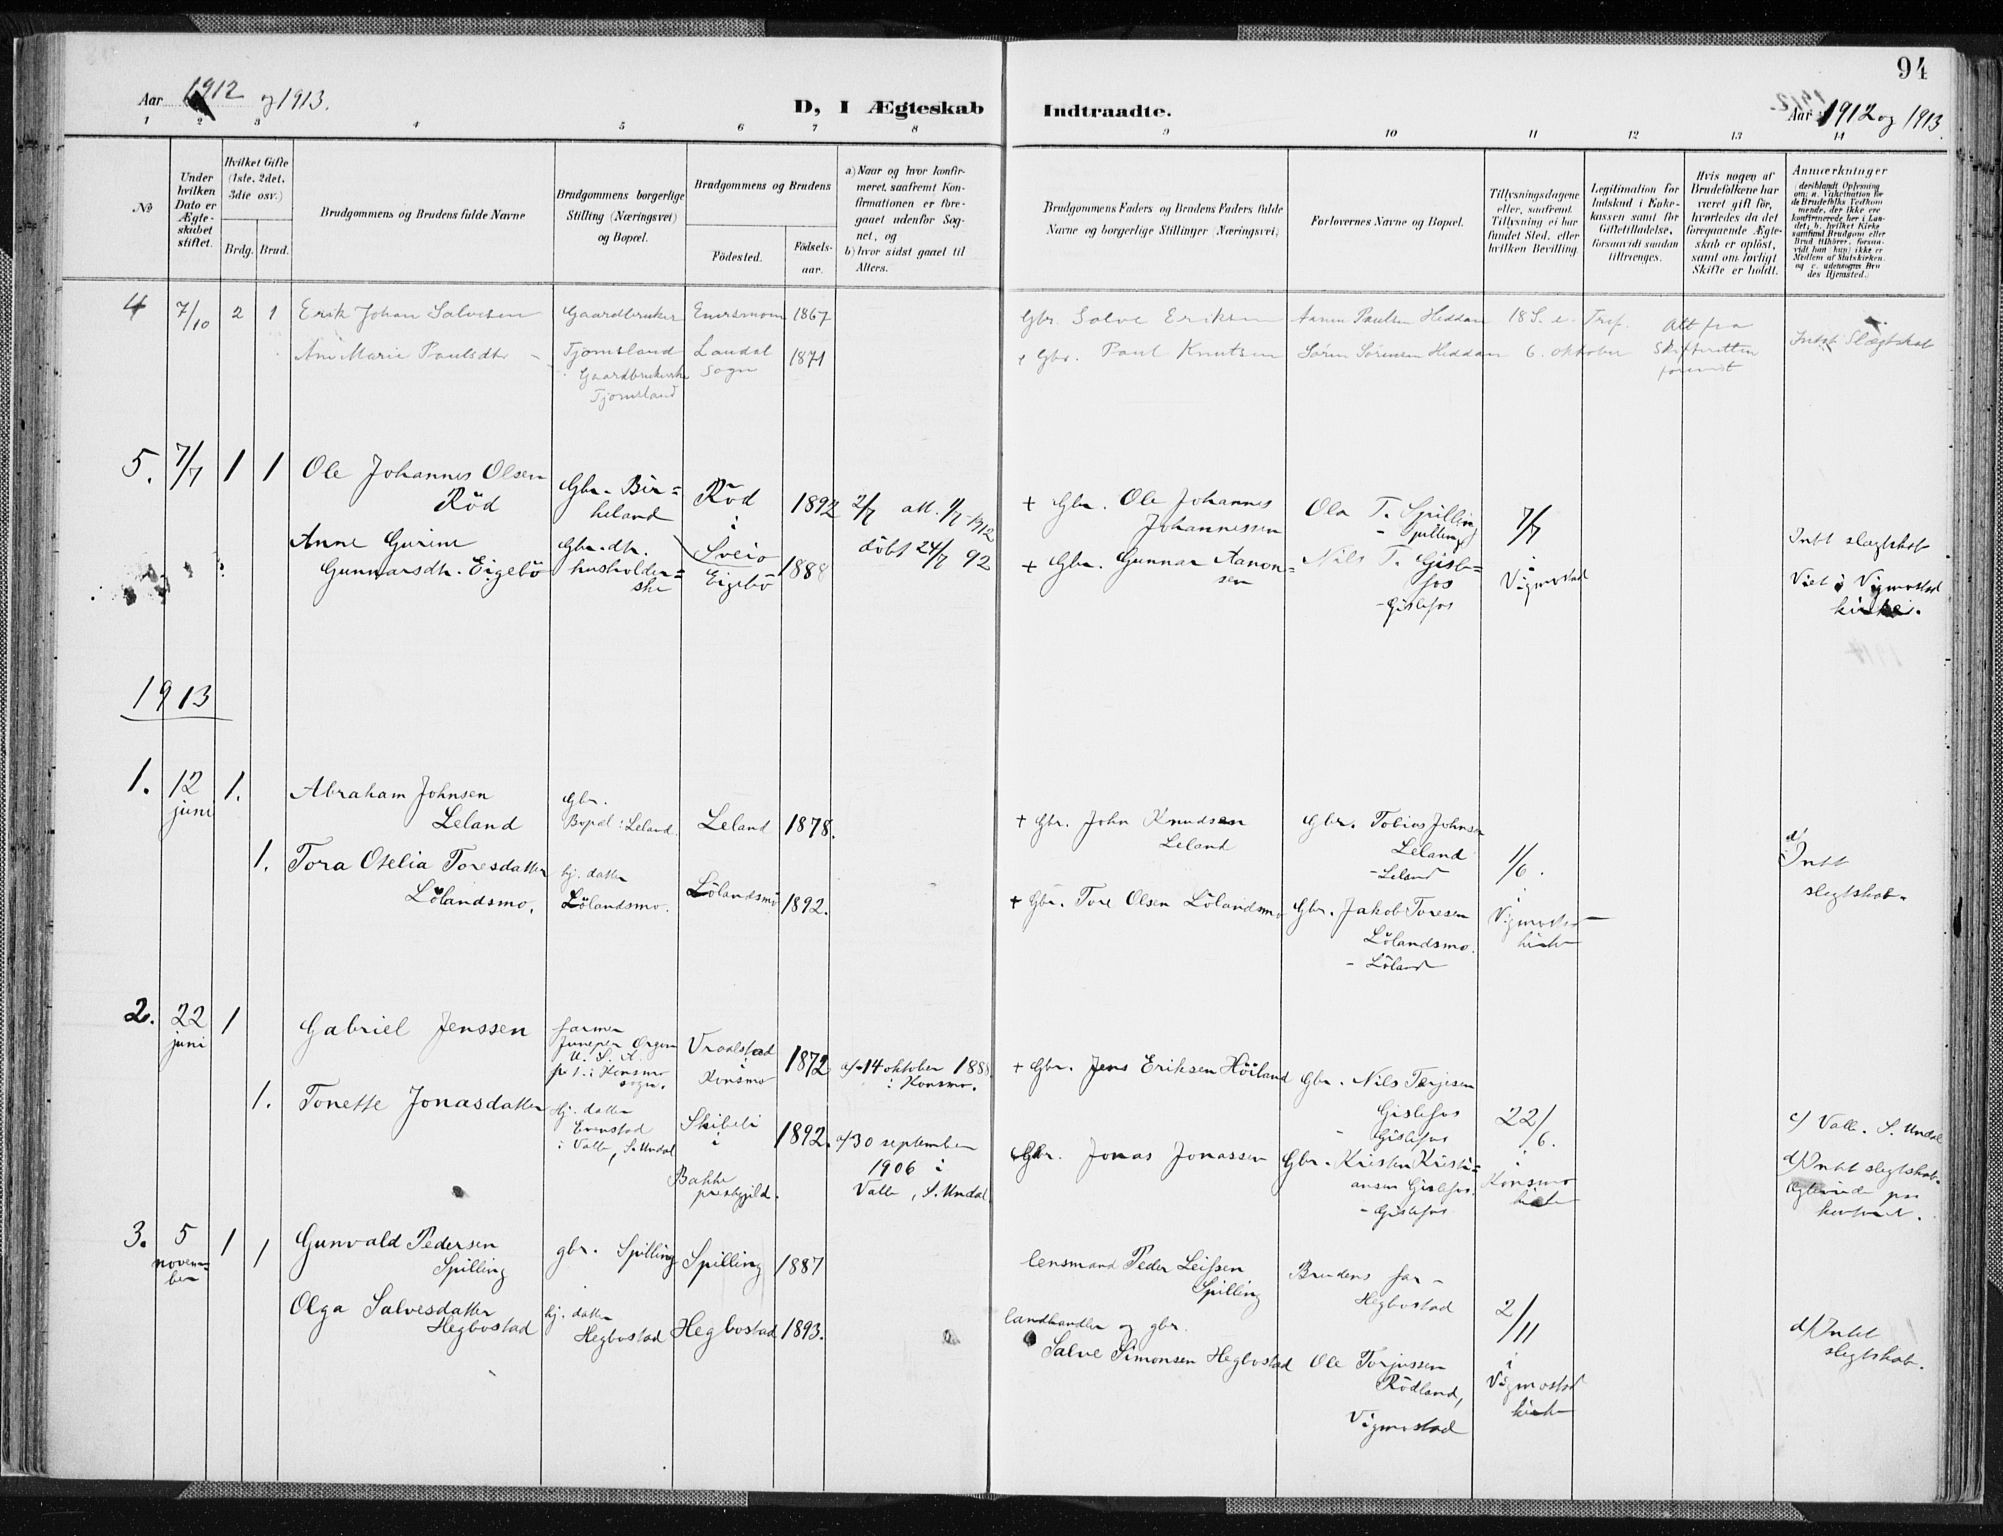 94
Aar 1912 og 1913.
D, I Ægteskab Indtraadte.
Aar 1912 og 1913.
1 2 3 4 5 6 7 8 9 10 11 12 13 14
No
Under hvilken Dato er Ægteskabet stiftet.
Hvilket Gifte (1ste, 2det, 3die osv.)
Brdg. Brud.
Brudgommens og Brudens fulde Navne
Brudgommens borgerlige Stilling (Næringsvei) og Bopæl.
Brudgommens og Brudens
Födested.
Födselsaar.
a) Naar og hvor konfirmeret, saafremt Konfirmationen er foregaaet udenfor Sognet, og
b) hvor sidst gaaet til Alters.
Brudgommens Faders og Brudens Faders fulde Navne og borgerlige Stillinger (Næringsvei)
Forlovernes Navne og Bopæl.
Tillysningsdagene eller, saafremt Tillysning ei har fundet Sted, efter hvilken Bevilling.
Legitimation for Indskud i Enkekassen samt for Giftetilladelse, forsaavidt saadan tiltrænges.
Hvis nogen af Brudefolkene har været gift för, hvorledes da det foregaaende Ægteskab er oplöst, samt om lovligt Skifte er holdt.
Anmærkninger
4 7/10 2 1 Erik Johan Salvesen Gaardbruker 1867 Gbr. Salve Eriksen Hedda
Ane Marie Paulsdtr Tjomsland Laudal 1871 + Gbr. Paul Knutsen Søren Sørensen Heddan 6. oktober Alt fra Skifteretten Intet Slægtskab
Gaardbrukerske Sogn
Tjomsland
5. 7/7 1 1 Ole Johannes Olsen Gbr. Birkeland Röd 1892 2/7 att. 1/7-1912 + Gbr. Ole Johannes Johannessen Ola T. Spilling - Spilling 7/7
Röd i Sveio döbt 24/7 92
Anne Gurine Gbr.dtr. husholderske Eigebö 1888 + Gbr. Gunnar Aanonsen Nils T. Gislefos - Gislefos i Vigmostad Intet slegtskab
Gunnarsdtr. Eigebö Viet i Vigmostad kirke.
1913
1. 12 juni 1. Abraham Johnsen Leland Gbr. Bopæl: Leland. Leland 1878. + Gbr. John Knudsen Leland Gbr. Tobias Johnsen Leland - Leland 1/6. d/ Intet slegtskab.
1. Tora Otelia Toresdatter Lölandsmo. hj. datter Lölandsmo. Lölandsmo 1892. + Gbr. Tore Olsen Lölandsmo Gbr. Jakob Toresen Lölandsmo. - Löland i Vigmostad kirke
2. 22 juni 1 Gabriel Jenssen farmer U. S. A. p. t. i Konsmo sogn. Vraalstad i Konsmo 1872 a/ 14 oktober i Konsmo. + Gbr. Jens Eriksen Höiland Gbr. Nils Terjesen Gislefos - Gislefos 22/6.
1. Tonette Jonasdatter hj. datter Evenstad i Valle, S. Undal Skibeli i Bakke prestgjeld. 1892. a/ 30 september 1906 i Valle, S. Undal Gbr. Jonas Jonassen Gbr. Kristen Kristiansen Gislefos. - Gislefos i Konsmo kirke c/ Valle. S. Undal
d/ Intet slegtskab.
3. 5 november 1 1 Gunvald Pedersen Spilling gbr. Spilling Spilling 1887 lensmand Peder Leifsen Spilling Brudens far - Hegbostad 2/11
Olga Salvesdatter Hegbostad hj. datter Hegbostad Hegbostad 1893. landhandler og gbr. Salve Simonsen Hegbostad Ole Torjussen Rödland, Vigmostad i Vigmostad kirke d/ Intet slegtskab.